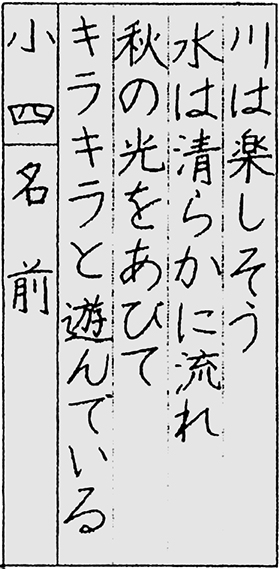 川は楽しそう
水は清らかに流れ
秋の光をあびて
キラキラと遊んでいる
小四 名前